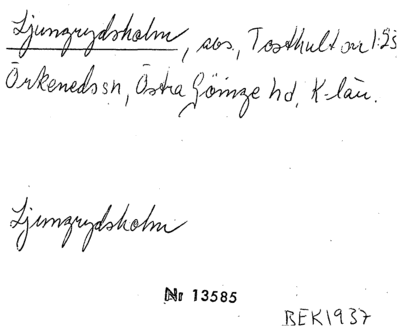 Ljungrydsholm, avs., Tosthult nr 1:23
Örkeneds sn, Östra Göinge hd, K-län.
Ljungrydsholm
Nr 13585
BEK1937